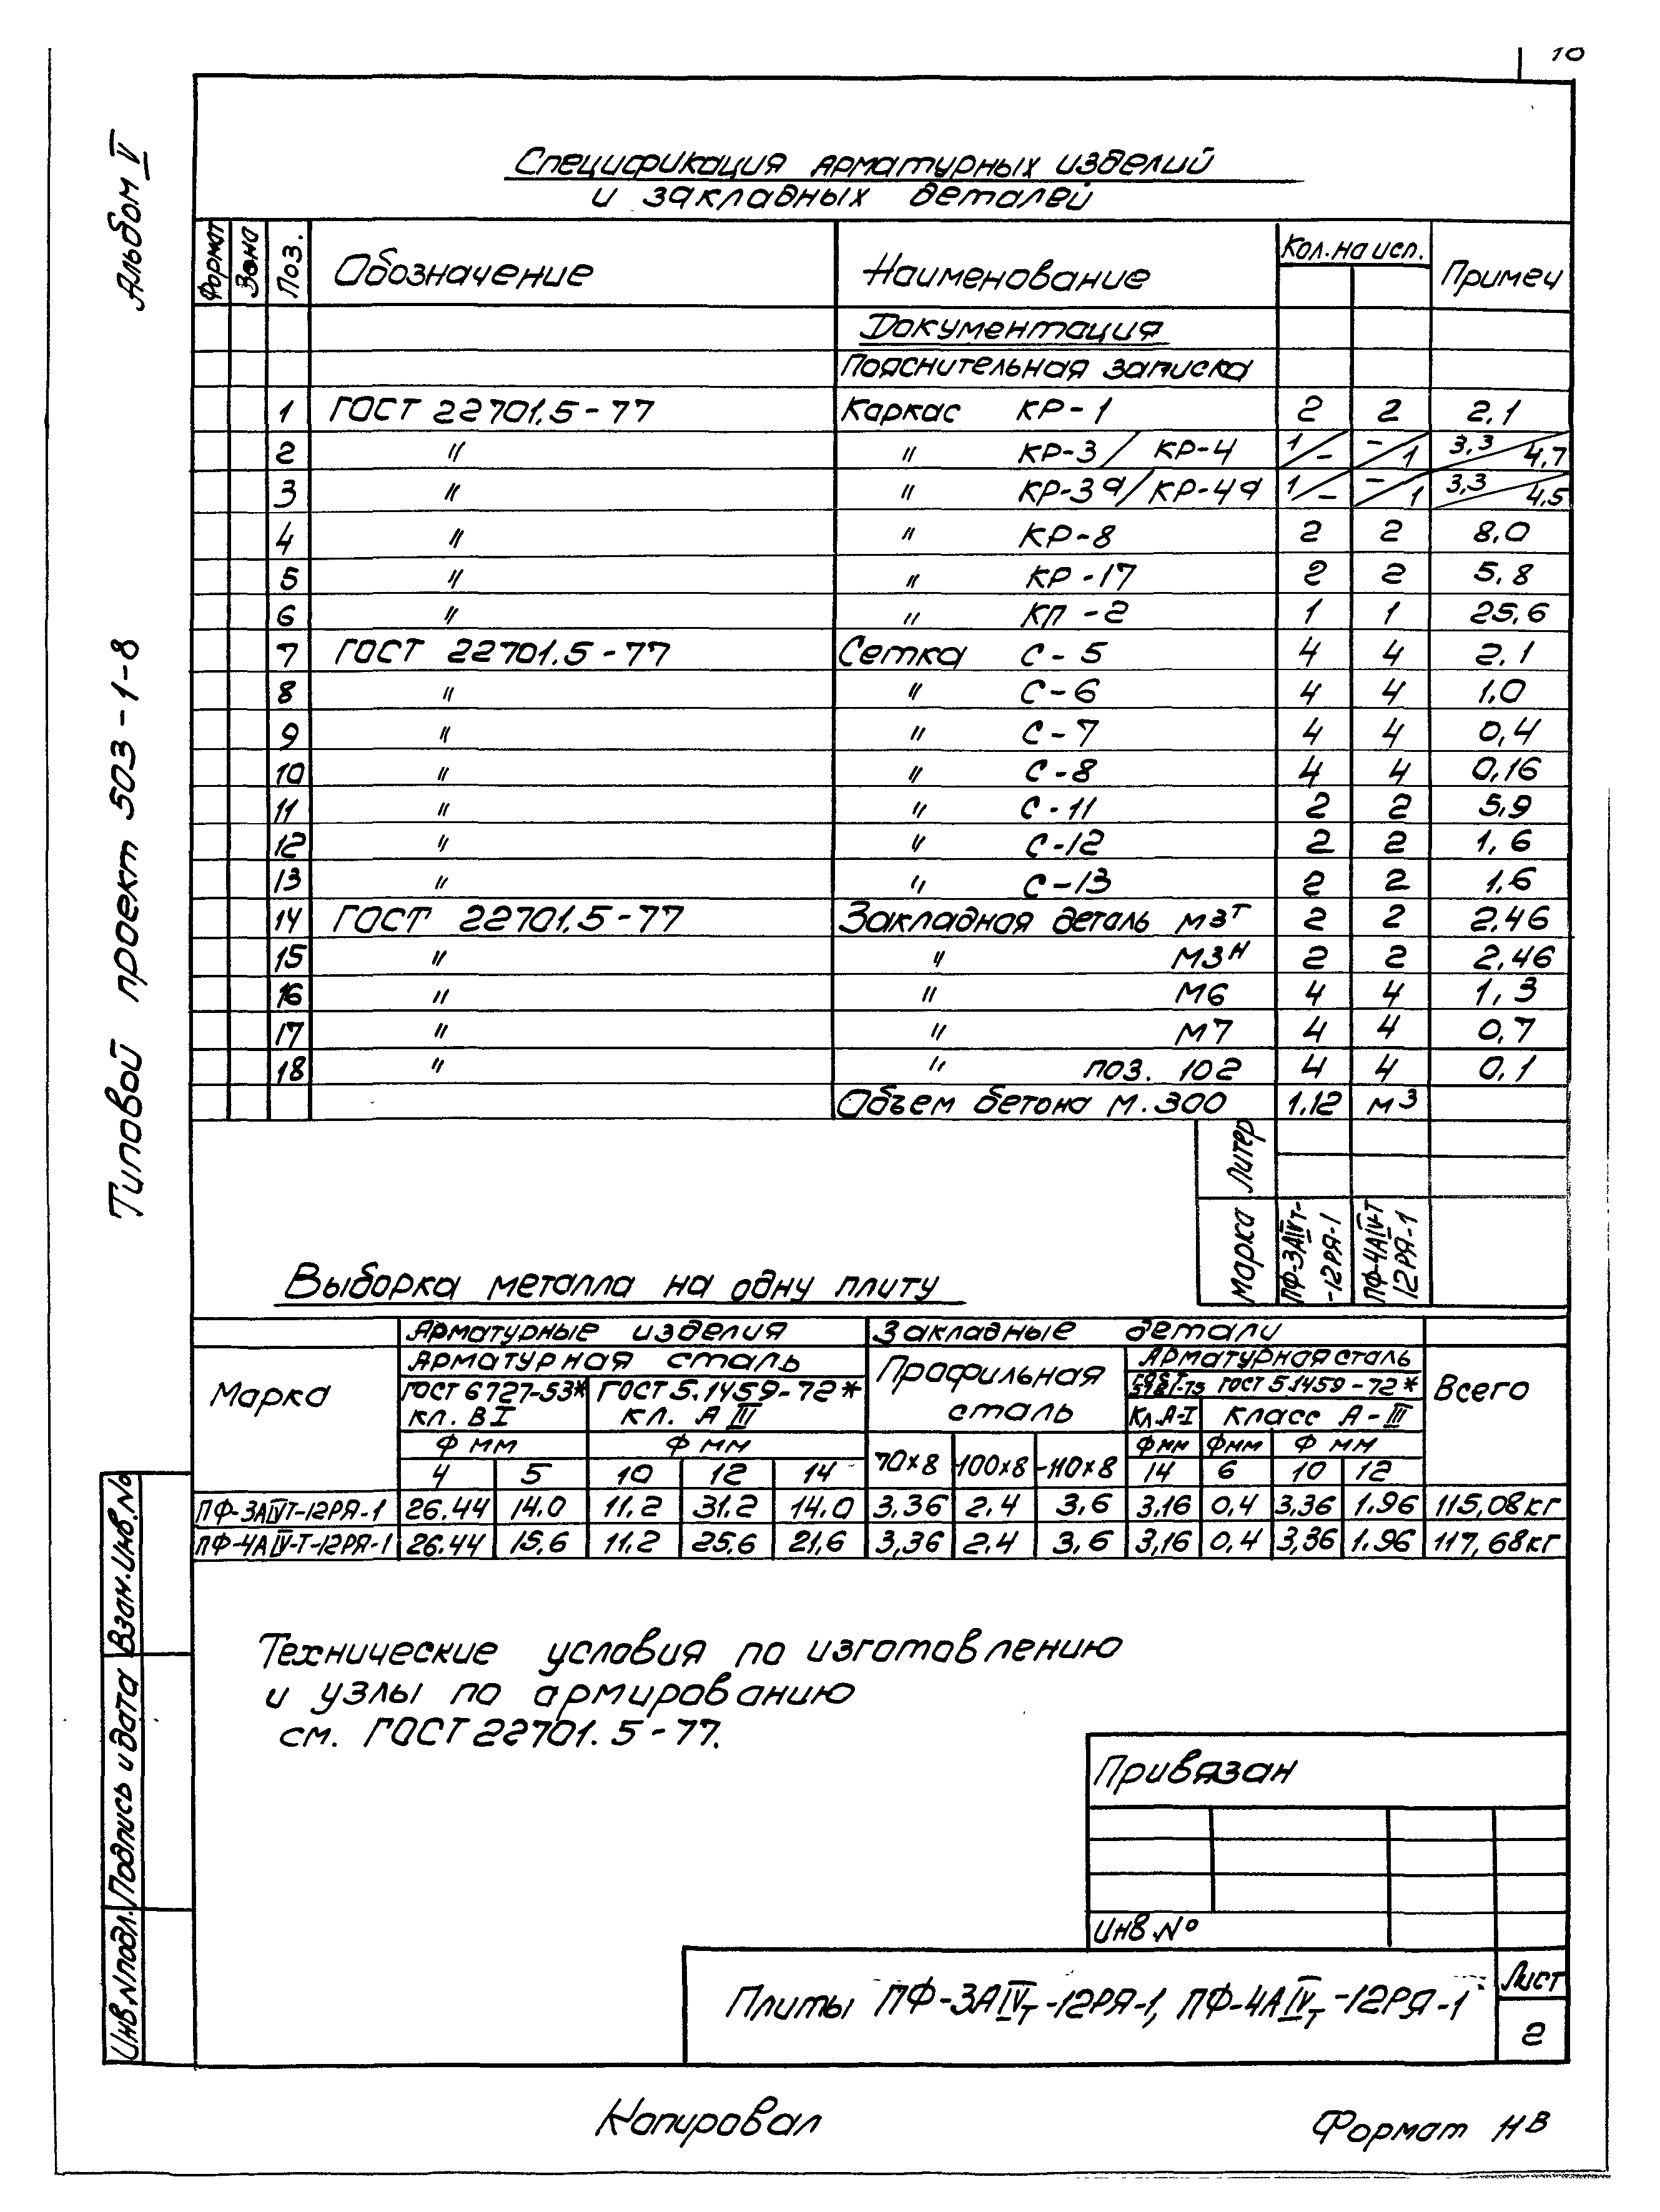 10
Альбом V
Типовой проект 503-1-8
Спецификация арматурных изделий
и закладных деталей
Формат Зона Поз. Обозначение Наименование Кол. на исп. Примеч
Документация
Пояснительная записка
1 ГОСТ 22701.5-77 Каркас КР-1 2 2 2,1
2 " " КР-3/КР-4 1/- -/1 3,3/4,7
3 " " КР-3а/КР-4а 1/- -/1 3,3/4,5
4 " " КР-8 2 2 8,0
5 " " КР-17 2 2 5,8
6 " " КП-2 1 1 25,6
7 ГОСТ 22701.5-77 Сетка С-5 4 4 2,1
8 " " С-6 4 4 1,0
9 " " С-7 4 4 0,4
10 " " С-8 4 4 0,16
11 " " С-11 2 2 5,9
12 " " С-12 2 2 1,6
13 " " С-13 2 2 1,6
14 ГОСТ 22701.5-77 Закладная деталь М3т 2 2 2,46
15 " " М3н 2 2 2,46
16 " " М6 4 4 1,3
17 " " М7 4 4 0,7
18 " " поз. 102 4 4 0,1
Объем бетона М.300 1,12 м3
Литер
Марка ПФ-3АIVт-12РЯ-1 ПФ-4АIV-Т 12РЯ-1
Выборка металла на одну плиту
Марка Арматурные изделия Закладные детали Всего
Арматурная сталь Профильная сталь Арматурная сталь
ГОСТ 6727-53* кл. ВI ГОСТ 5.1459-72* кл. АIII ГОСТ 5781-75 ГОСТ 5.1459-72*
Кл. А-I Класс А-III
Ф мм Ф мм Ф мм Ф мм Ф мм
4 5 10 12 14 70×8 -100×8 -110×8 14 6 10 12
ПФ-3АIVТ-12РЯ-1 26.44 14.0 11.2 31.2 14.0 3,36 2.4 3,6 3,16 0,4 3,36 1.96 115,08кг
ПФ-4АIV-Т-12РЯ-1 26.44 15,6 11.2 25.6 21,6 3,36 2.4 3,6 3,16 0,4 3,36 1.96 117,68кг
Технические условия по изготовлению
и узлы по армированию
см. ГОСТ 22701.5-77.
Привязан
Инв.№
Плиты ПФ-3АIVт-12РЯ-1, ПФ-4АIVт-12РЯ-1
Лист
2
Инв.Nподл. Подпись и дата Взам.Инв.№
Копировал
Формат 11В